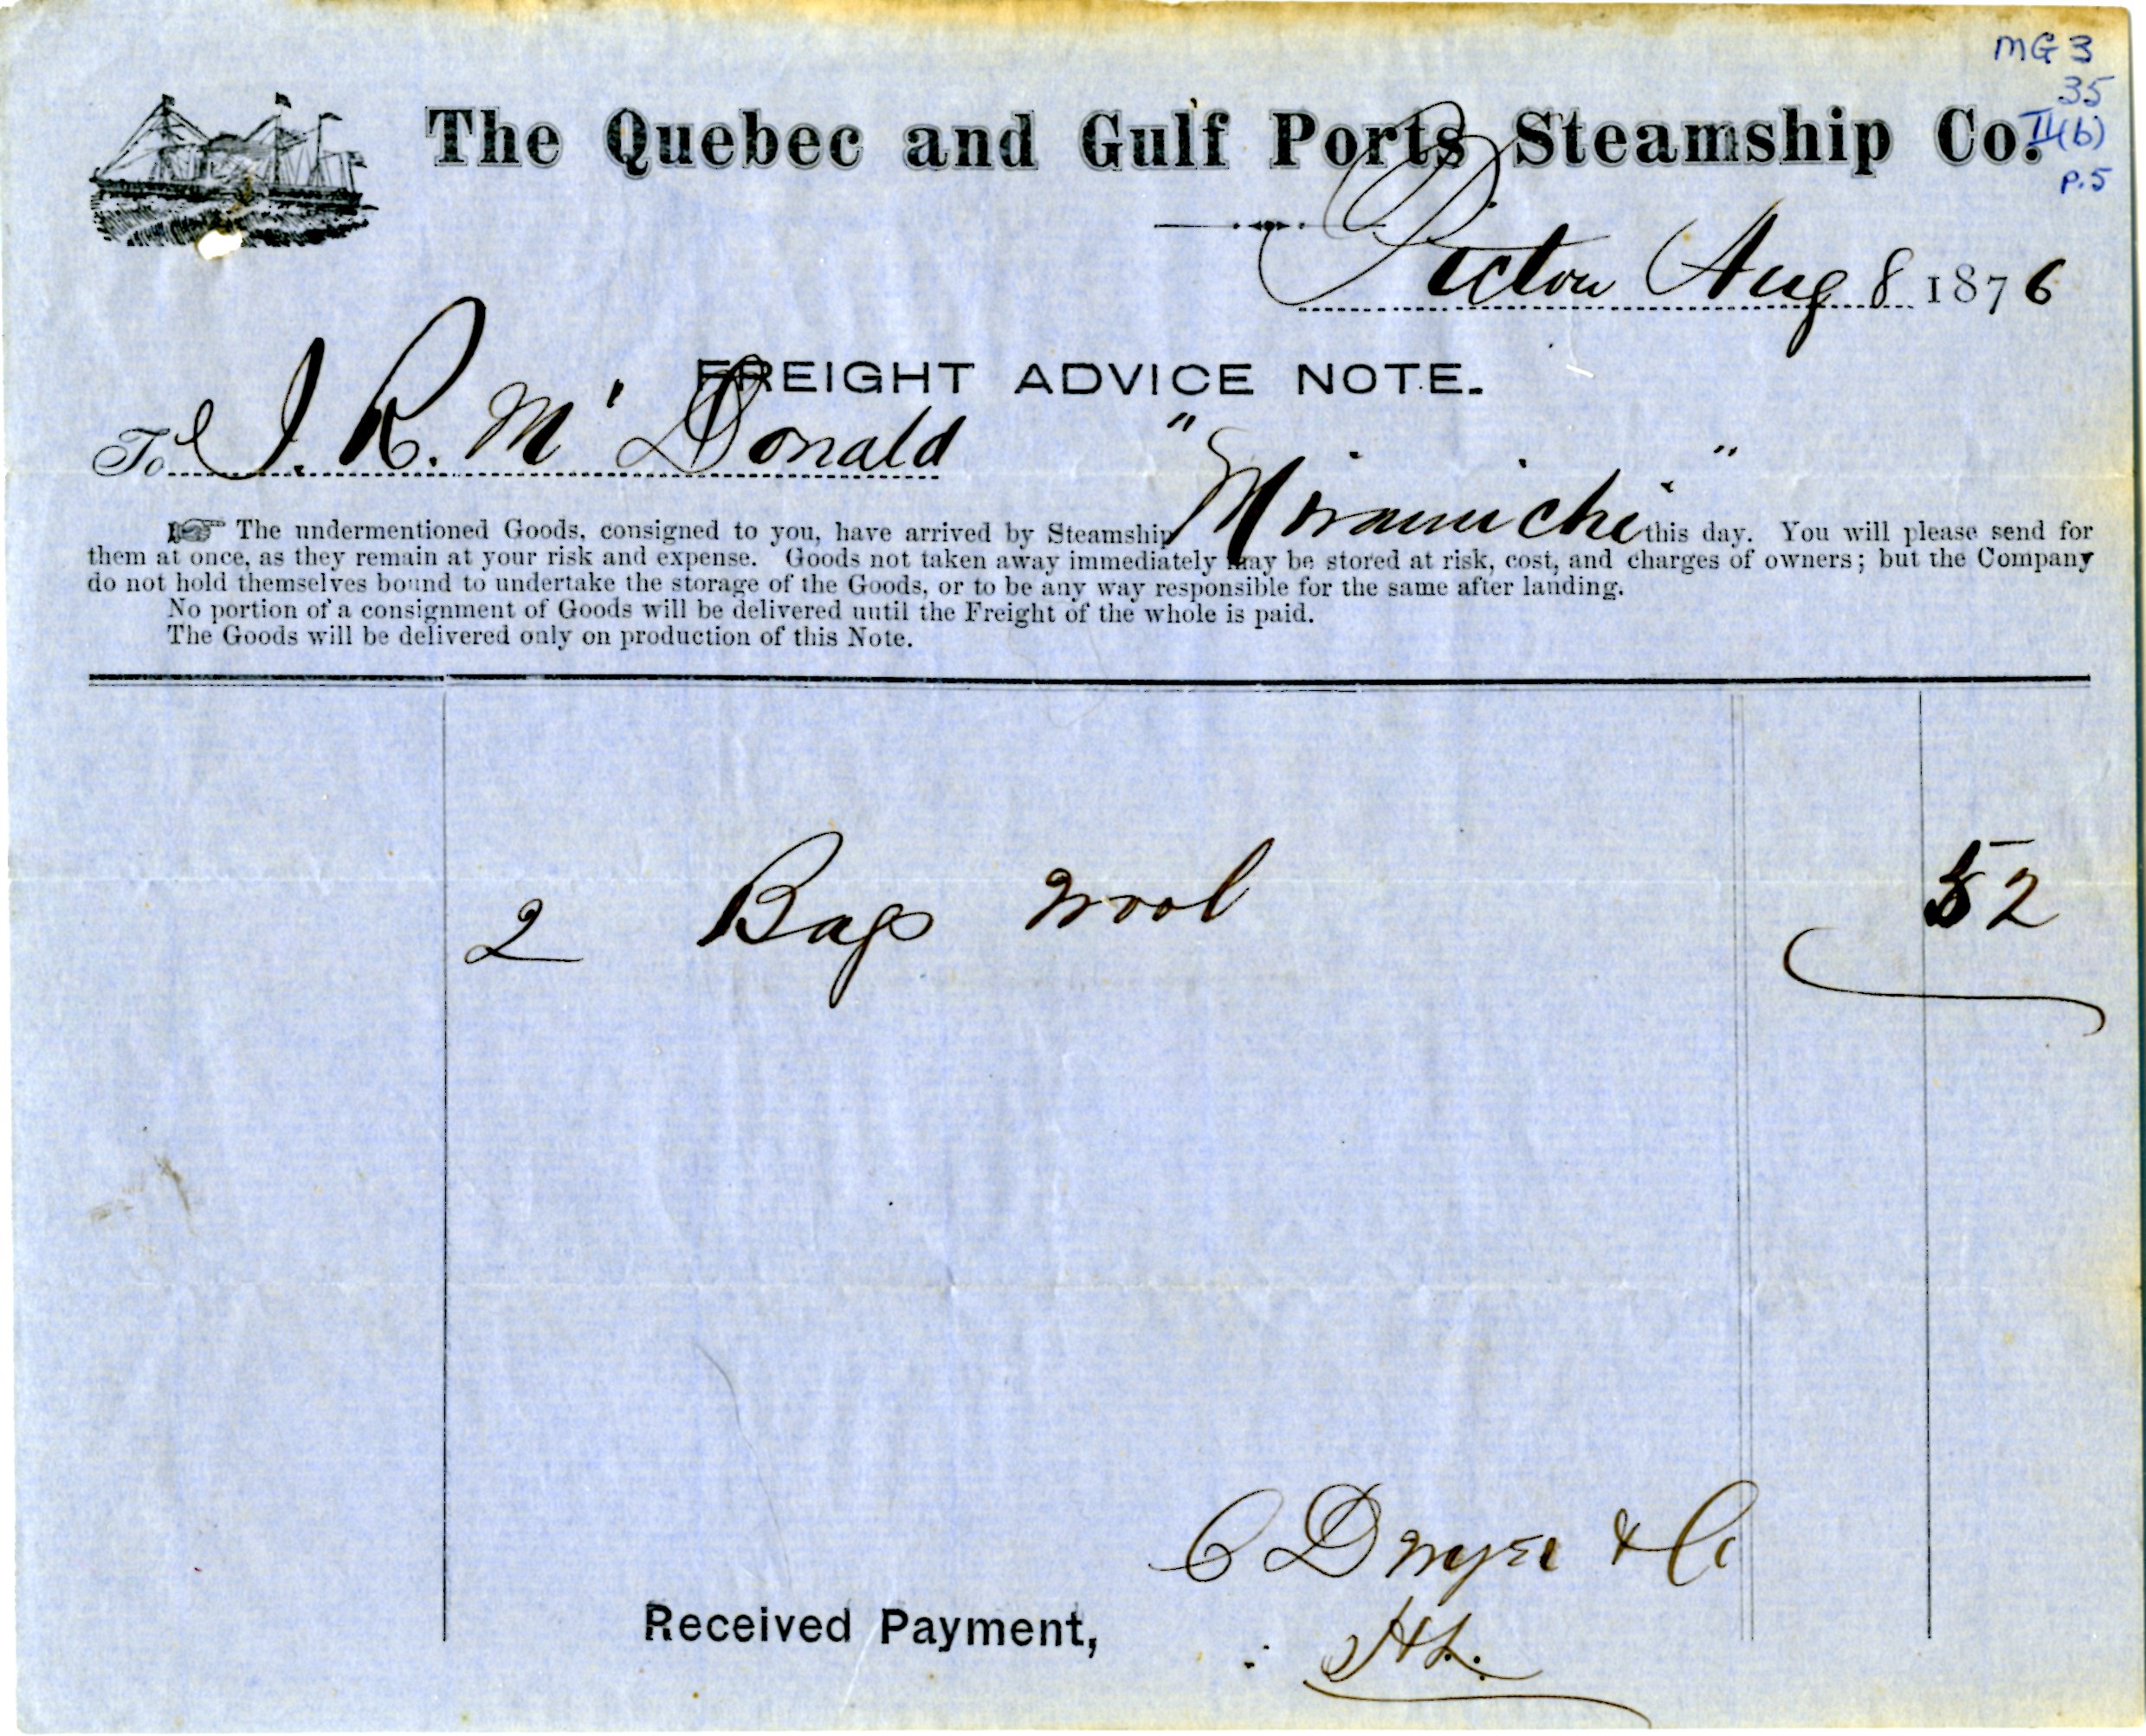 MG 3
35
II(b)
P.5
The Quebec and Gulf Ports Steamship Co.
Pictou Aug 8 1876
FREIGHT ADVICE NOTE.
To J. R. Mc Donald
The undermentioned Goods, consigned to you, have arrived by Steamship "Miramichi" this day. You will please send for
them at once, as they remain at your risk and expense. Goods not taken away immediately may be stored at risk, cost, and charges of owners; but the Company
do not hold themselves bound to undertake the storage of the Goods, or to be any way responsible for the same after landing.
No portion of a consignment of Goods will be delivered until the Freight of the whole is paid.
The Goods will be delivered only on production of this Note.
2 Bags Wool 52
C Dwyer & Co
Received Payment,